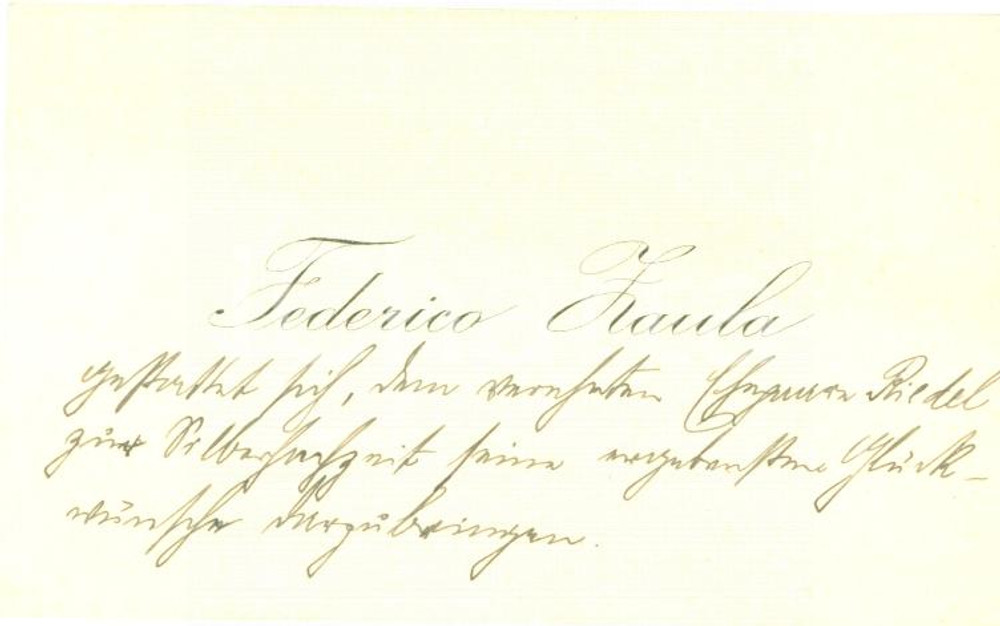 Federico Zaula
gestattet sich, dem verehrten Ehepaare Riedel
zur Silberhochzeit seine ergebensten Glück-
wünsche darzubringen.